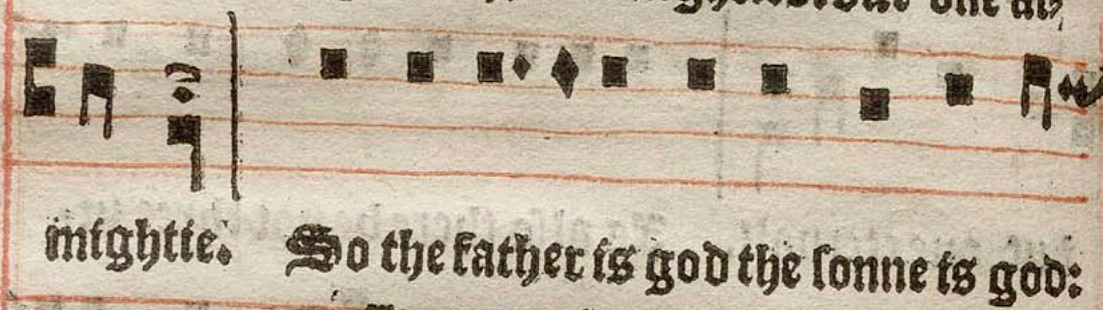 mightie. So the father is god the sonne is god: